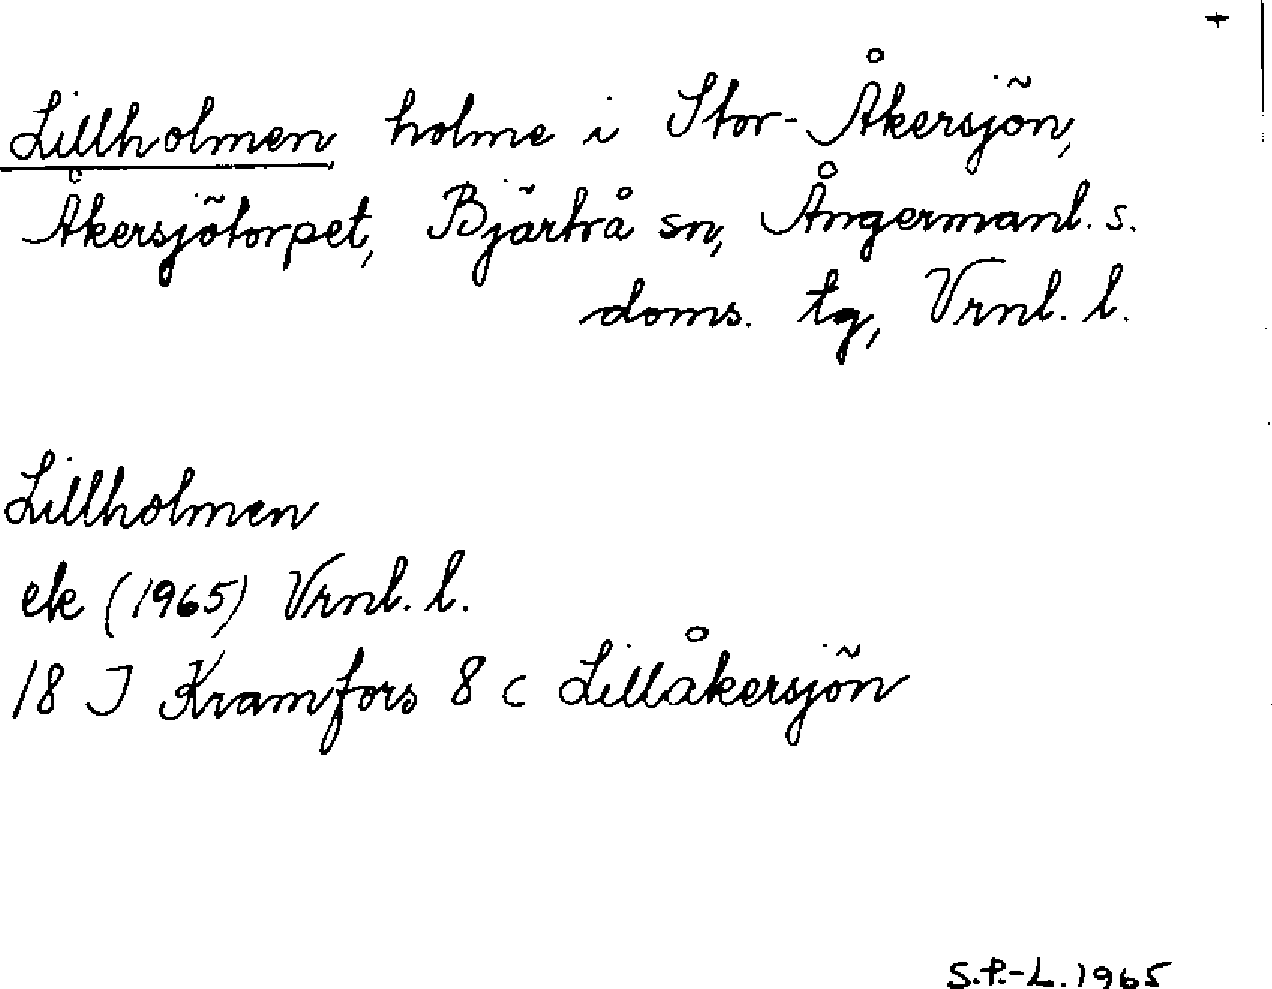 +
Lillholmen holme i Stor-Åkersjön,
Åkersjötorpet, Bjärtrå sn, Ångermanl. s.
doms. tg, Vrnl. l.
Lillholmen
ek (1965) Vrnl. l.
18 J Kramfors 8 c Lillåkersjön
S.P.-L. 1965